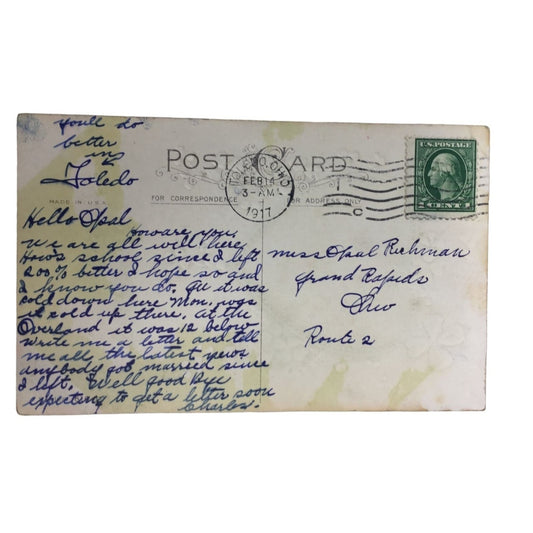 you'll do
better
in
Toledo
POST CARD
MADE IN U.S.A.
FOR CORRESPONDENCE
FOR ADDRESS ONLY
TOLEDO, OHIO
FEB 14
3-AM
1917
U.S. POSTAGE
Hello Opal
How are you.
We are all well here
How's school since I left
200% better I hope so and
I know you do. Gee it was
cold down here Mon. was
it cold up there. At the
Overland it was 12 below
Write me a letter and tell
me all the latest news
anybody got married since
I left. Well good Bye
expecting to get a letter soon
Charles.
Miss Opal Richman
Grand Rapids
Ohio
Route 2